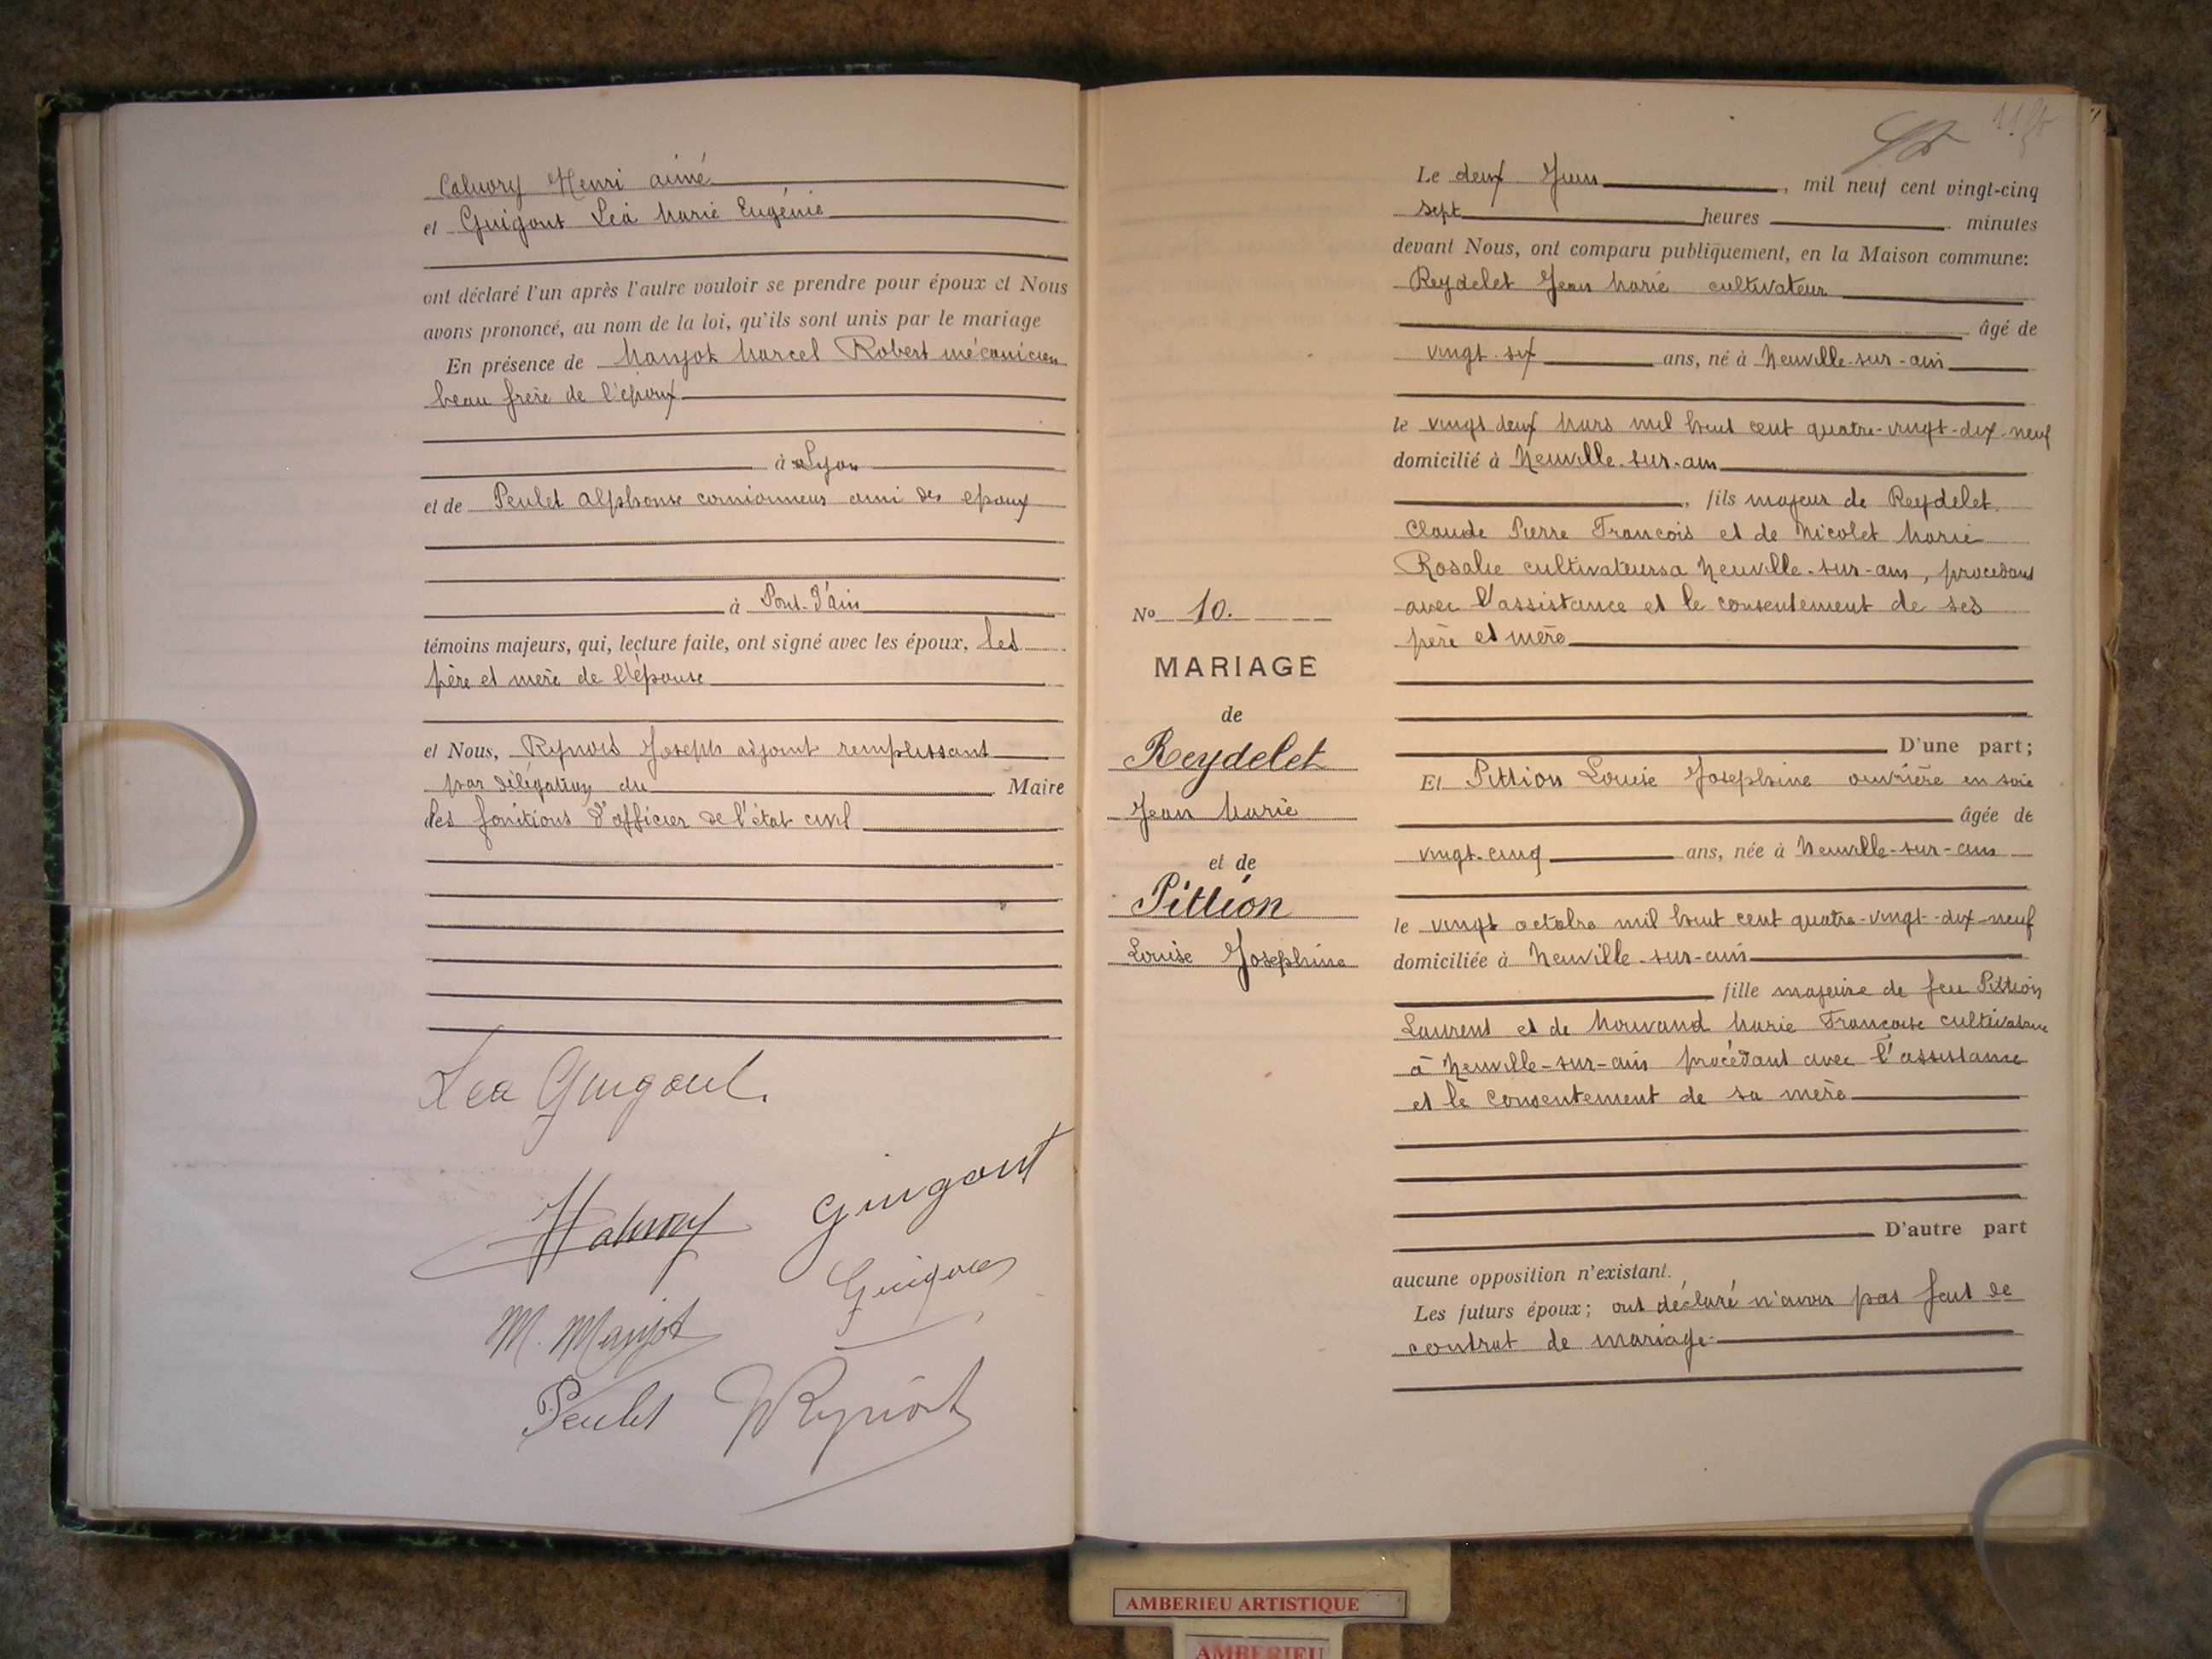 Caluory Henri aimé
et Guigont Léa Marie Eugénie
ont déclaré l'un après l'autre vouloir se prendre pour époux et Nous
avons prononcé, au nom de la loi, qu'ils sont unis par le mariage
En présence de Manjot Marcel Robert mécanicien
beau frère de l'époux
à Lyon
et de Peulet Alphonse camionneur ami des epoux
à Pont-d'ain
témoins majeurs, qui, lecture faite, ont signé avec les époux, les
père et mère de l'épouse
et Nous, Joseph adjoint remplissant
par délégation du Maire
les fonctions d'officier de l'état civil
Lea Guigont.
Guigont
M. Manjot
Peulet
Le deux Juin, mil neuf cent vingt-cinq
sept heures minutes
devant Nous, ont comparu publiquement, en la Maison commune:
Reydelet Jean Marie cultivateur
âgé de
vingt-six ans, né à Neuville-sur-ain
le vingt deux Mars mil huit cent quatre-vingt-dix-neuf
domicilié à Neuville-sur-ain
, fils majeur de Reydelet
Claude Pierre François et de Nicolet Marie
Rosalie cultivateurs a Neuville-sur-ain, procédant
avec l'assistance et le consentement de ses
père et mère
D'une part;
Et Pittion Louise Josephine ouvrière en soie
âgée de
vingt-cinq ans, née à Neuville-sur-ain
le vingt octobre mil huit cent quatre-vingt-dix-neuf
domiciliée à Neuville-sur-ain
fille majeure de feu Pittion
Laurent et de Morvand Marie Françoise cultivatrice
à Neuville-sur-ain procédant avec l'assistance
et le consentement de sa mère
D'autre part
aucune opposition n'existant.
Les futurs époux; ont déclaré n'avoir pas fait de
contrat de mariage
No 10.
MARIAGE
de
Reydelet
Jean Marie
et de
Pittion
Louise Josephine
AMBERIEU ARTISTIQUE
AMBERIEU